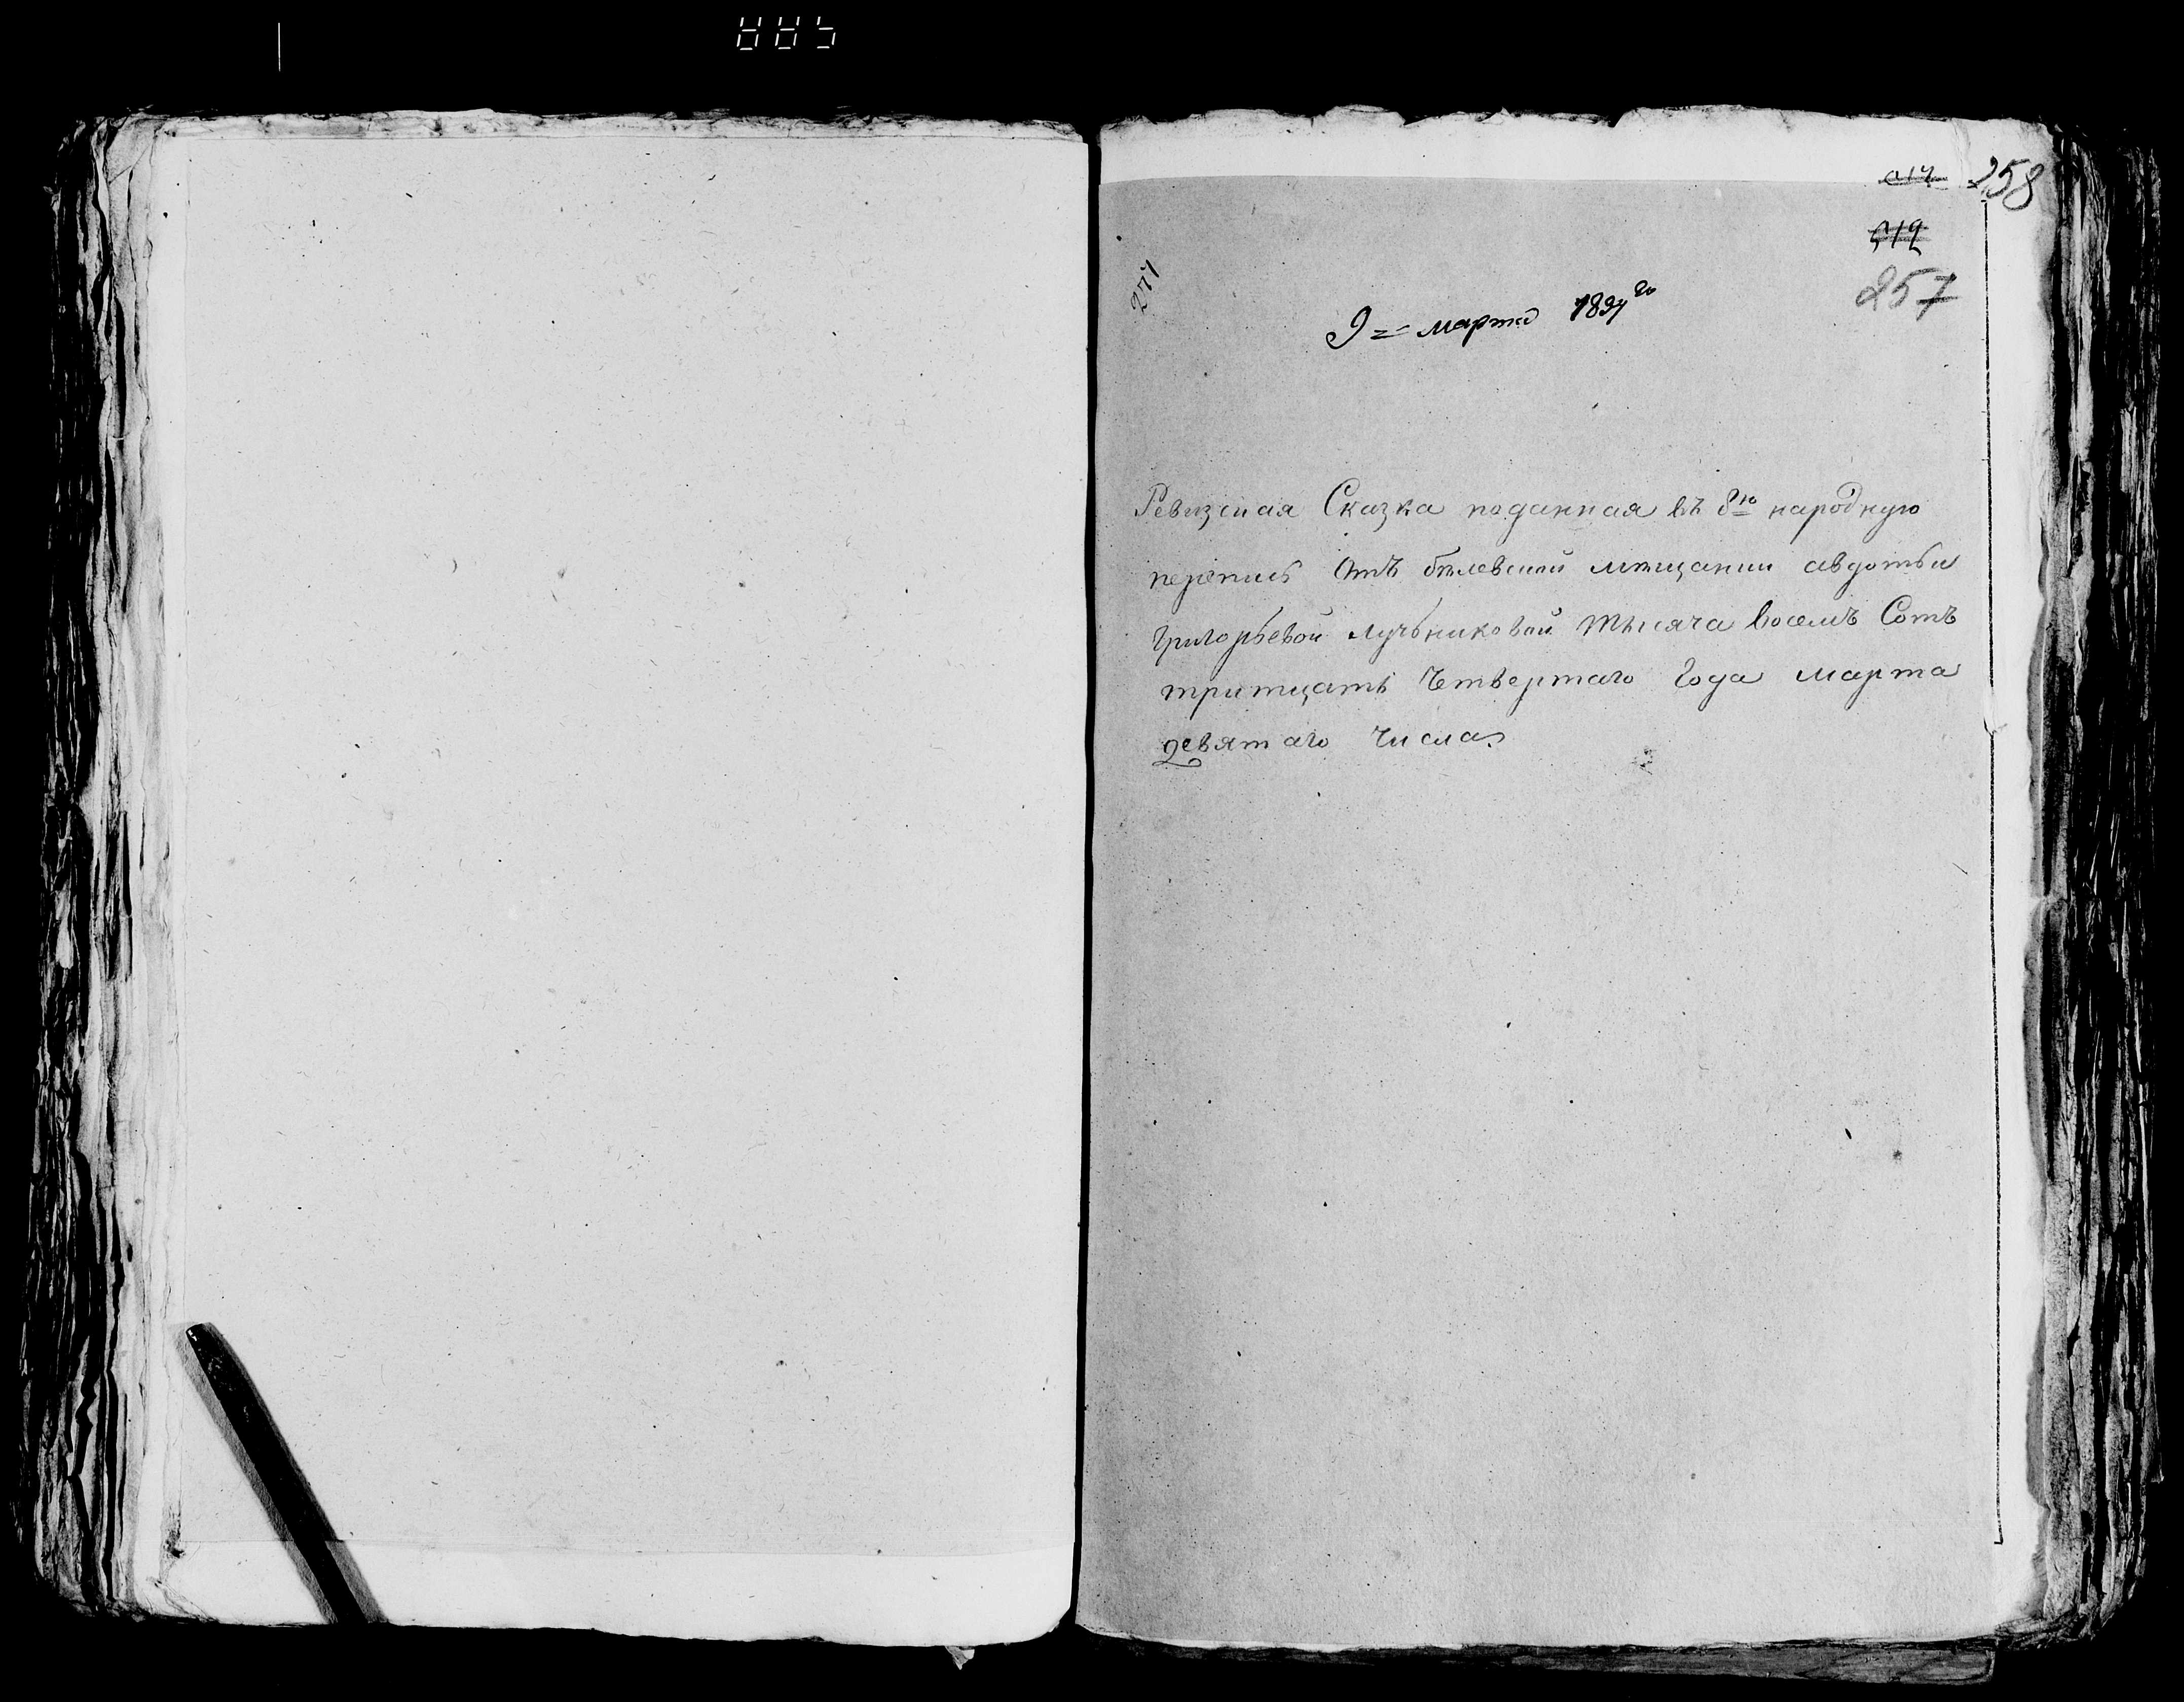 258
257
277
9 = марта 1834го
Ревизская Сказка поданная въ 8ю народную
перепись Отъ бѣлевской мѣщанки авдотьи
григорьевой лучниковой тысяча восемь Сотъ
тритцать четвертаго Года марта
девятаго числа